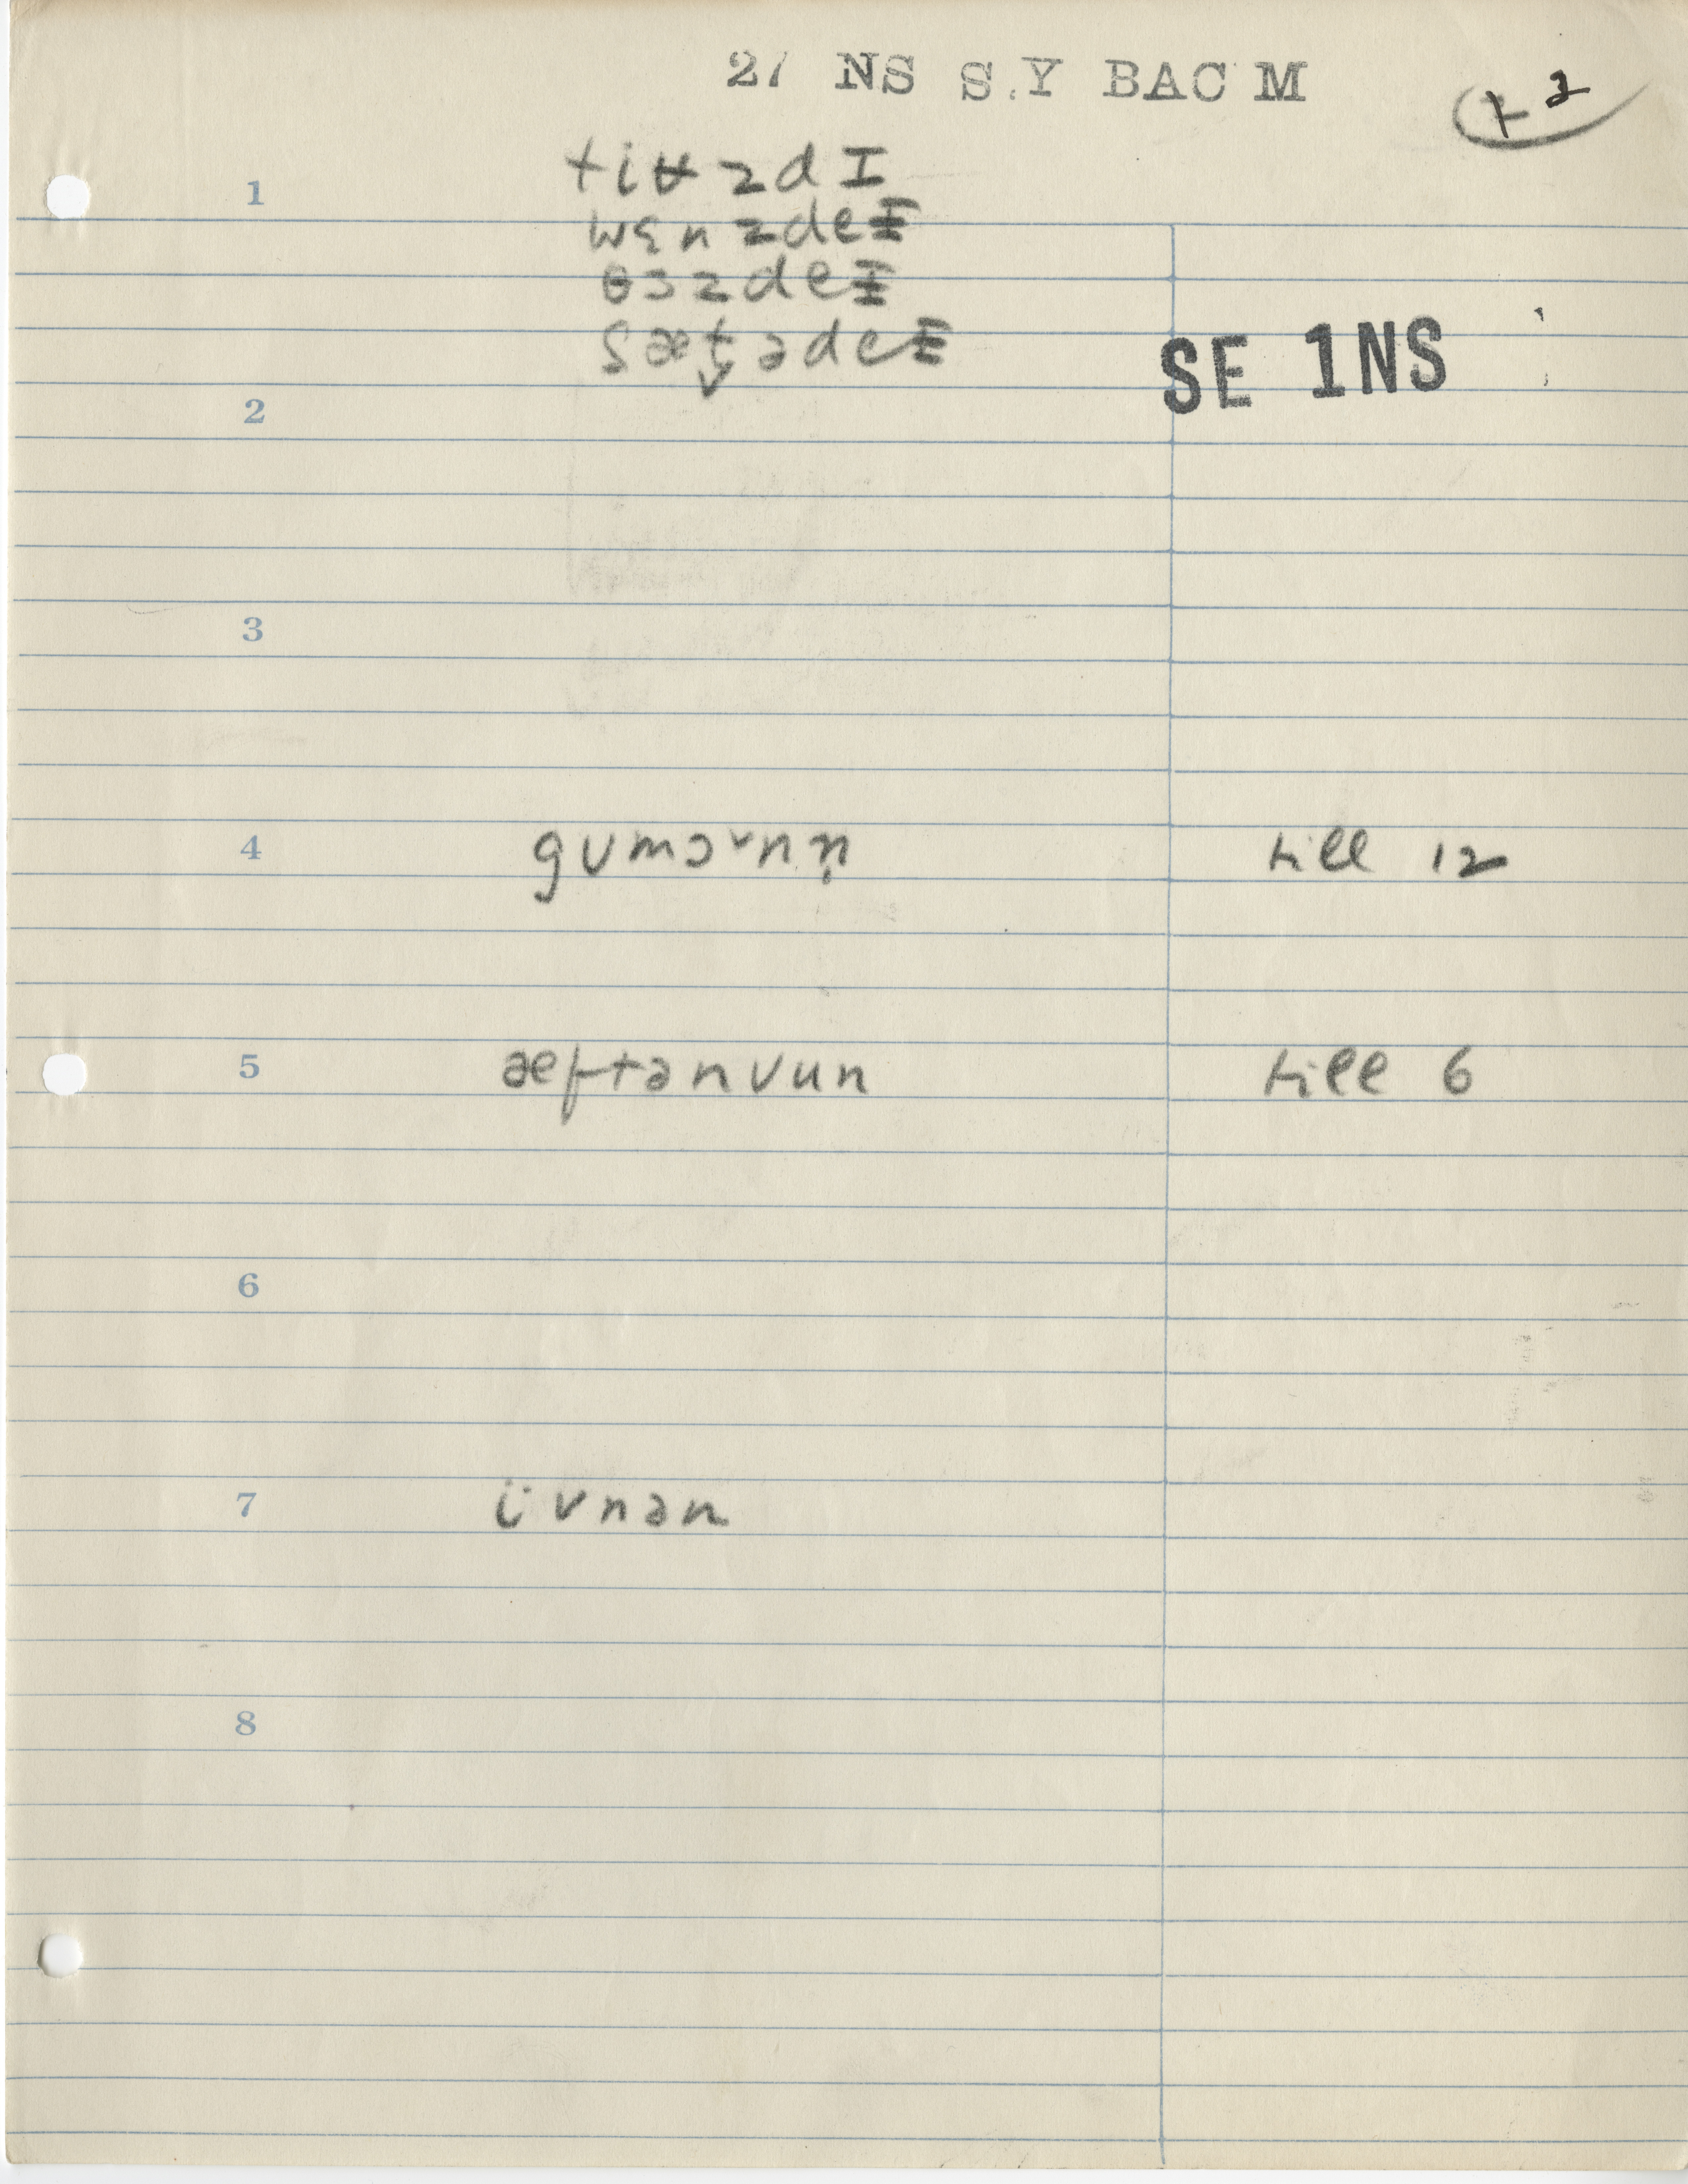 27 NS S.Y BAC M
t 2
1 tiʉzdɪ
wɛnzdeɪ
θɜzdeɪ
sæt̬ədeɪ
SE 1NS
2
3
4 gʊmɔᵛnn̩ till 12
5 æftənʊun till 6
6
7 ivnən
8